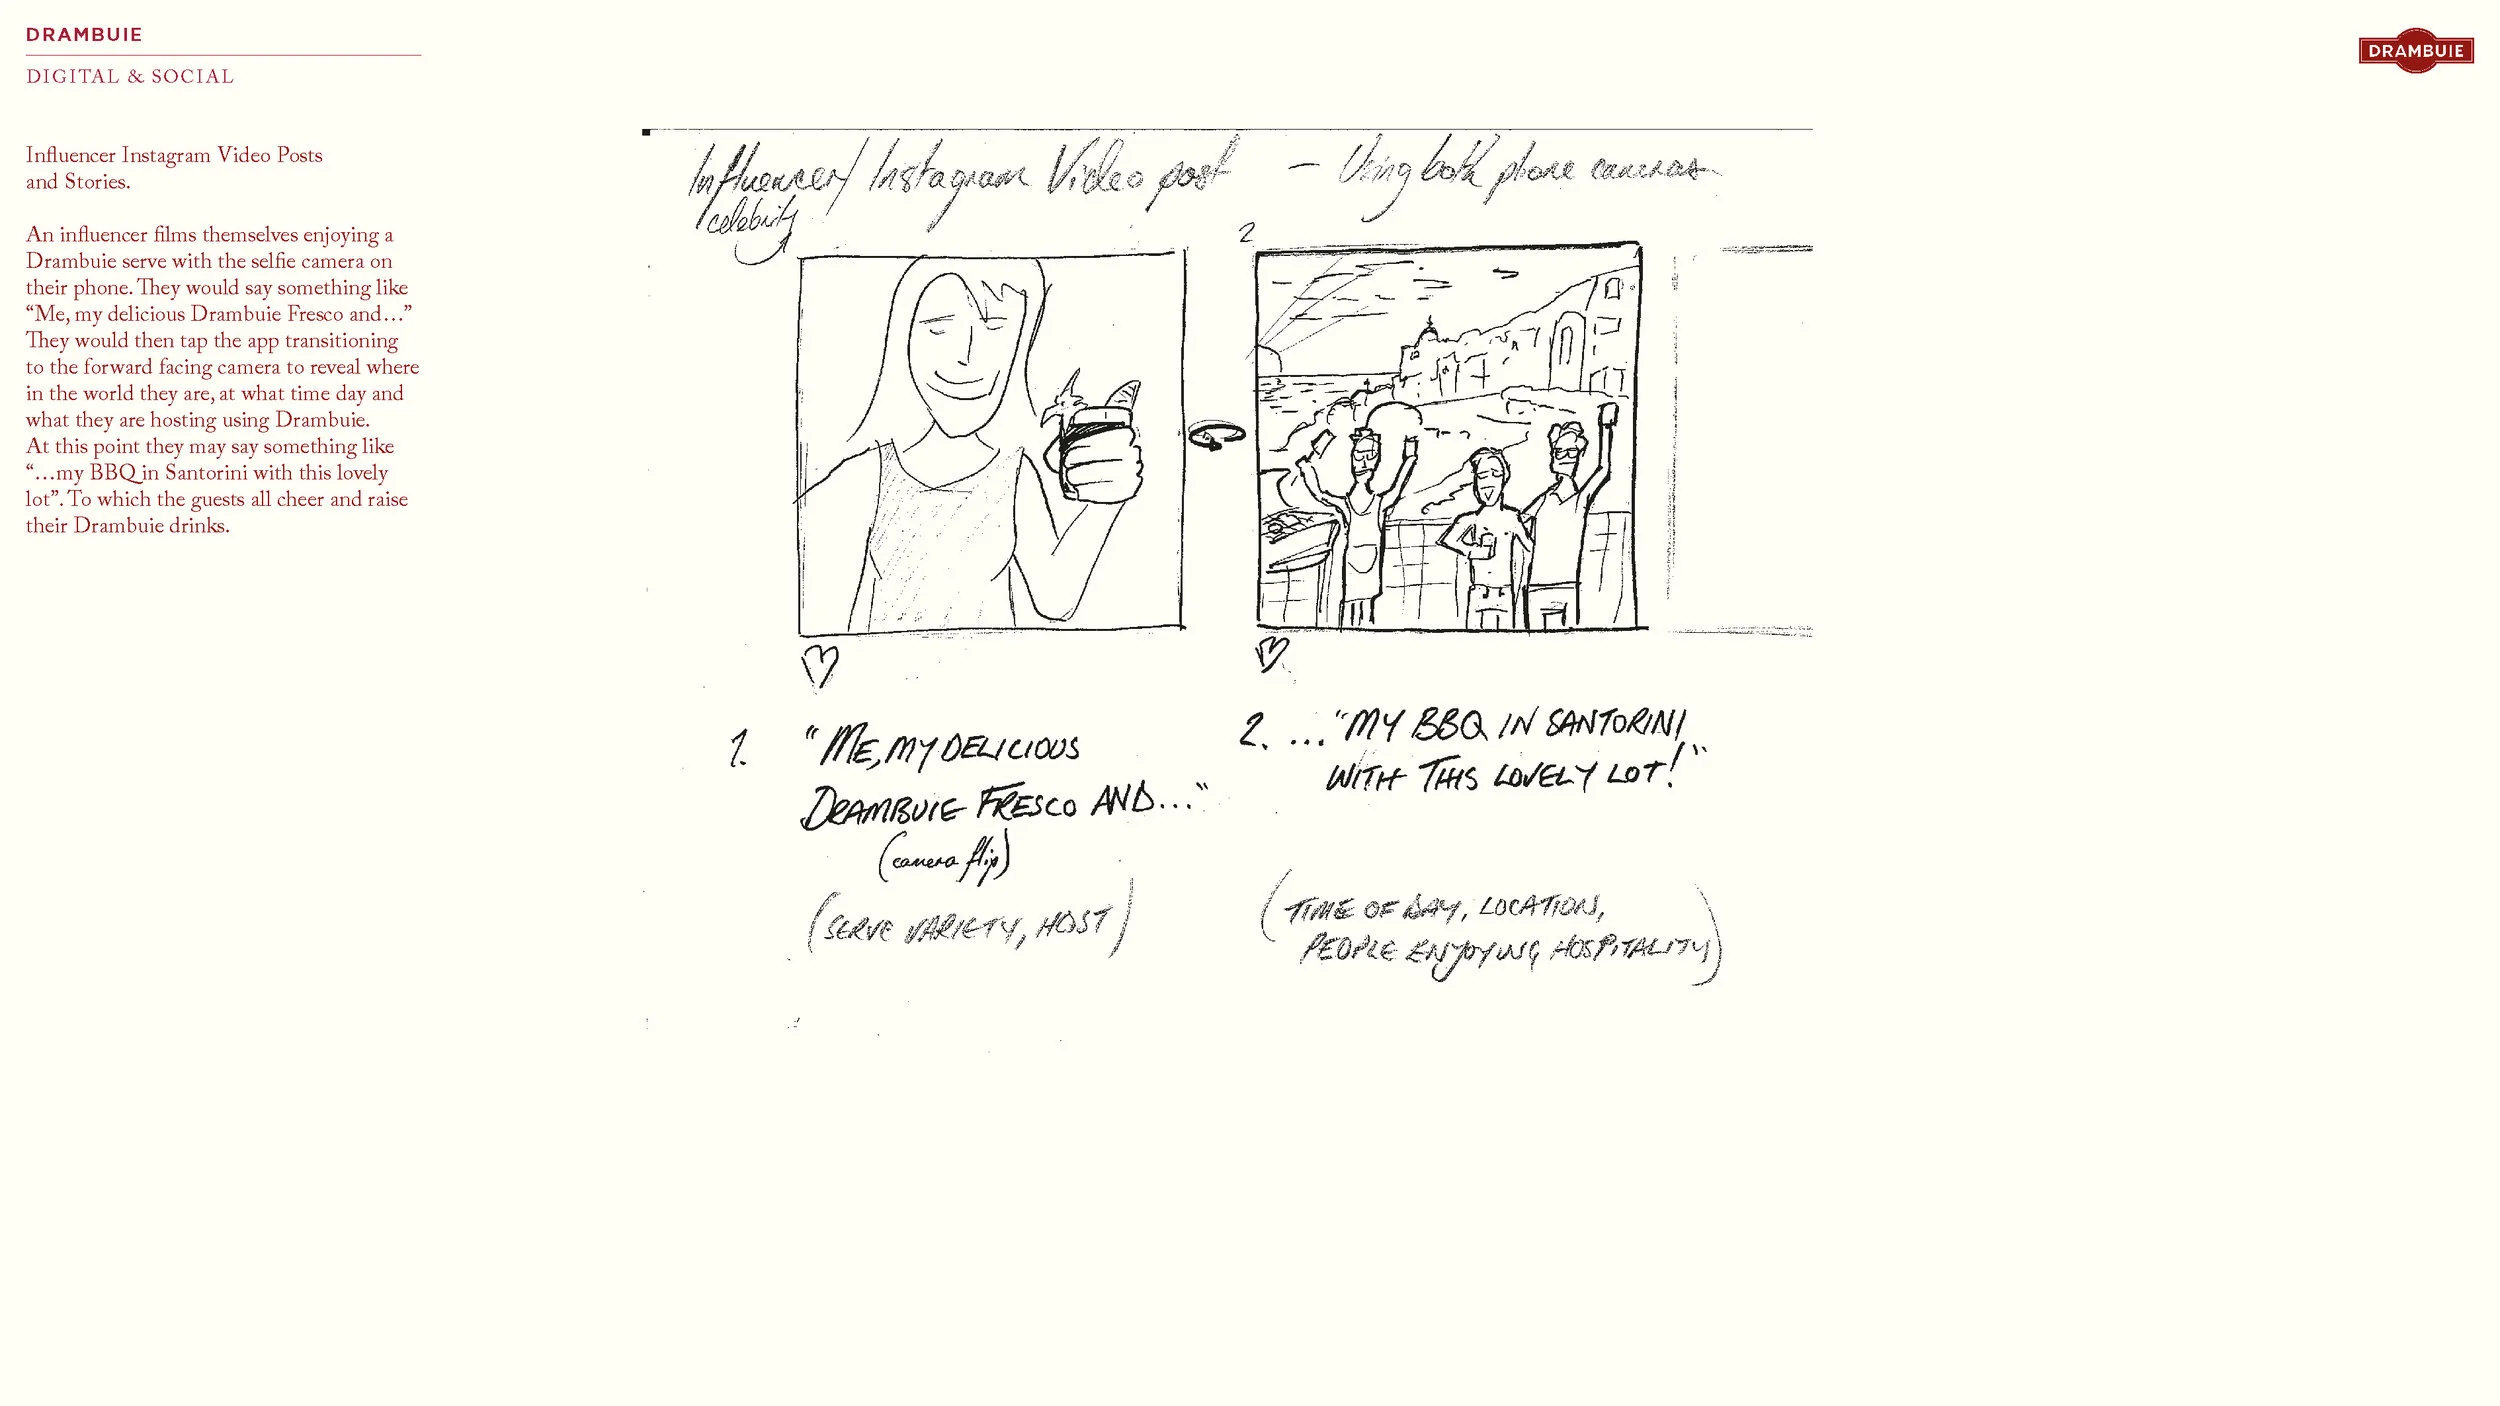 DRAMBUIE
DIGITAL & SOCIAL
DRAMBUIE
Influencer Instagram Video Posts
and Stories.
An influencer films themselves enjoying a
Drambuie serve with the selfie camera on
their phone. They would say something like
“Me, my delicious Drambuie Fresco and…”
They would then tap the app transitioning
to the forward facing camera to reveal where
in the world they are, at what time day and
what they are hosting using Drambuie.
At this point they may say something like
“…my BBQ in Santorini with this lovely
lot”. To which the guests all cheer and raise
their Drambuie drinks.
Influencer/ Instagram Video post - Using both phone cameras
celebrity
2
1. "ME, MY DELICIOUS
DRAMBUIE FRESCO AND..."
(camera flip)
(SERVE VARIETY, HOST)
2. ..."MY BBQ IN SANTORINI
WITH THIS LOVELY LOT!"
(TIME OF DAY, LOCATION,
PEOPLE ENJOYING HOSPITALITY)